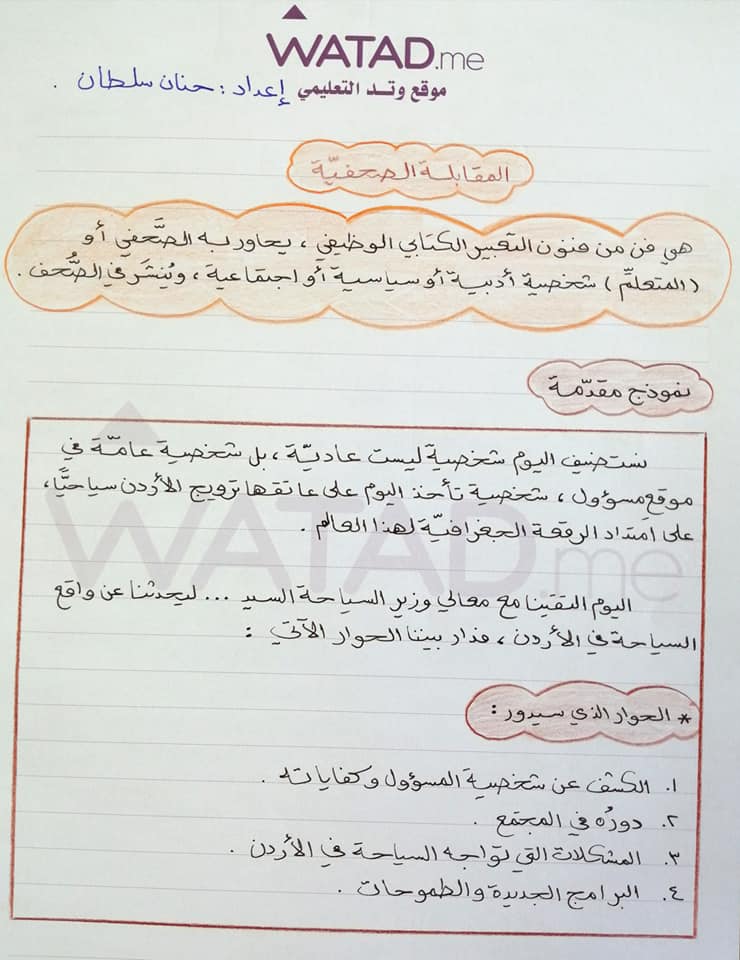 WATAD.me
موقع وتد التعليمي إعداد : حنان سلطان .
المقابلة الصحفيّة
هي فن من فنون التعبير الكتابي الوظيفي ، يحاور به الصَّحفي أو
(المتعلّم) شخصية أدبية أو سياسية أو اجتماعية ، ويُنشَر في الصُّحف .
نموذج مقدّمة
نستضيف اليوم شخصية ليست عاديّة ، بل شخصية عامّة في
موقعِ مسؤول ، شخصية تأخذ اليوم على عاتقها ترويج الأردن سياحيًّا ،
على امتداد الرقعة الجغرافيّة لهذا العالم .
اليوم التقينا مع معالي وزير السياحة السيد ... ليحدثنا عن واقع
السياحة في الأردن ، فدار بيننا الحوار الآتي :
* الحوار الذي سيدور :
١. الكشف عن شخصية المسؤول وكفاياته .
٢. دورُه في المجتمع .
٣. المشكلات التي تواجه السياحة في الأردن .
٤. البرامج الجديدة والطموحات .
WATAD.me